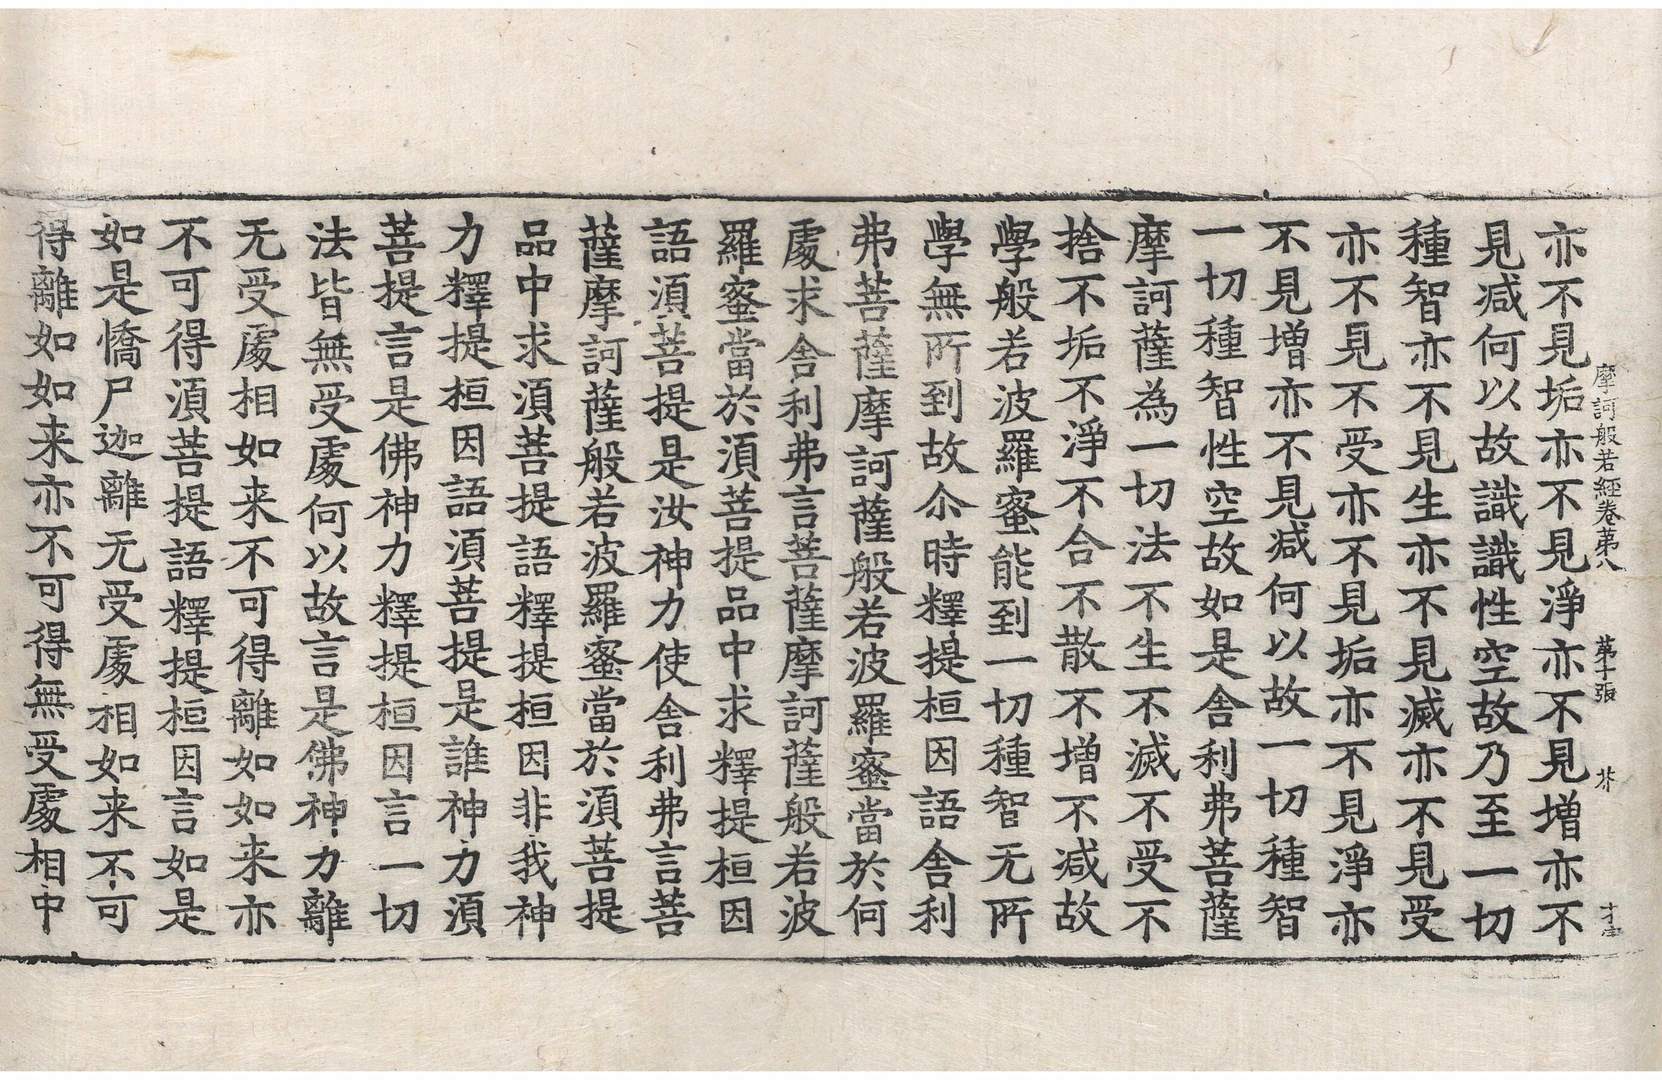 摩訶般若經卷第八　第十張　芥
亦不見垢亦不見淨亦不見增亦不
見减何以故識識性空故乃至一切
種智亦不見生亦不見滅亦不見受
亦不見不受亦不見垢亦不見淨亦
不見增亦不見减何以故一切種智
一切種智性空故如是舍利弗菩薩
摩訶薩為一切法不生不滅不受不
捨不垢不淨不合不散不增不减故
學般若波羅蜜能到一切種智无所
學無所到故尒時釋提桓因語舍利
弗菩薩摩訶薩般若波羅蜜當於何
處求舍利弗言菩薩摩訶薩般若波
羅蜜當於湏菩提品中求釋提桓因
語湏菩提是汝神力使舍利弗言菩
薩摩訶薩般若波羅蜜當於湏菩提
品中求湏菩提語釋提桓因非我神
力釋提桓因語湏菩提是誰神力湏
菩提言是佛神力釋提桓因言一切
法皆無受處何以故言是佛神力離
无受處相如来不可得離如如来亦
不可得湏菩提語釋提桓因言如是
如是憍尸迦離无受處相如来不可
得離如如来亦不可得無受處相中